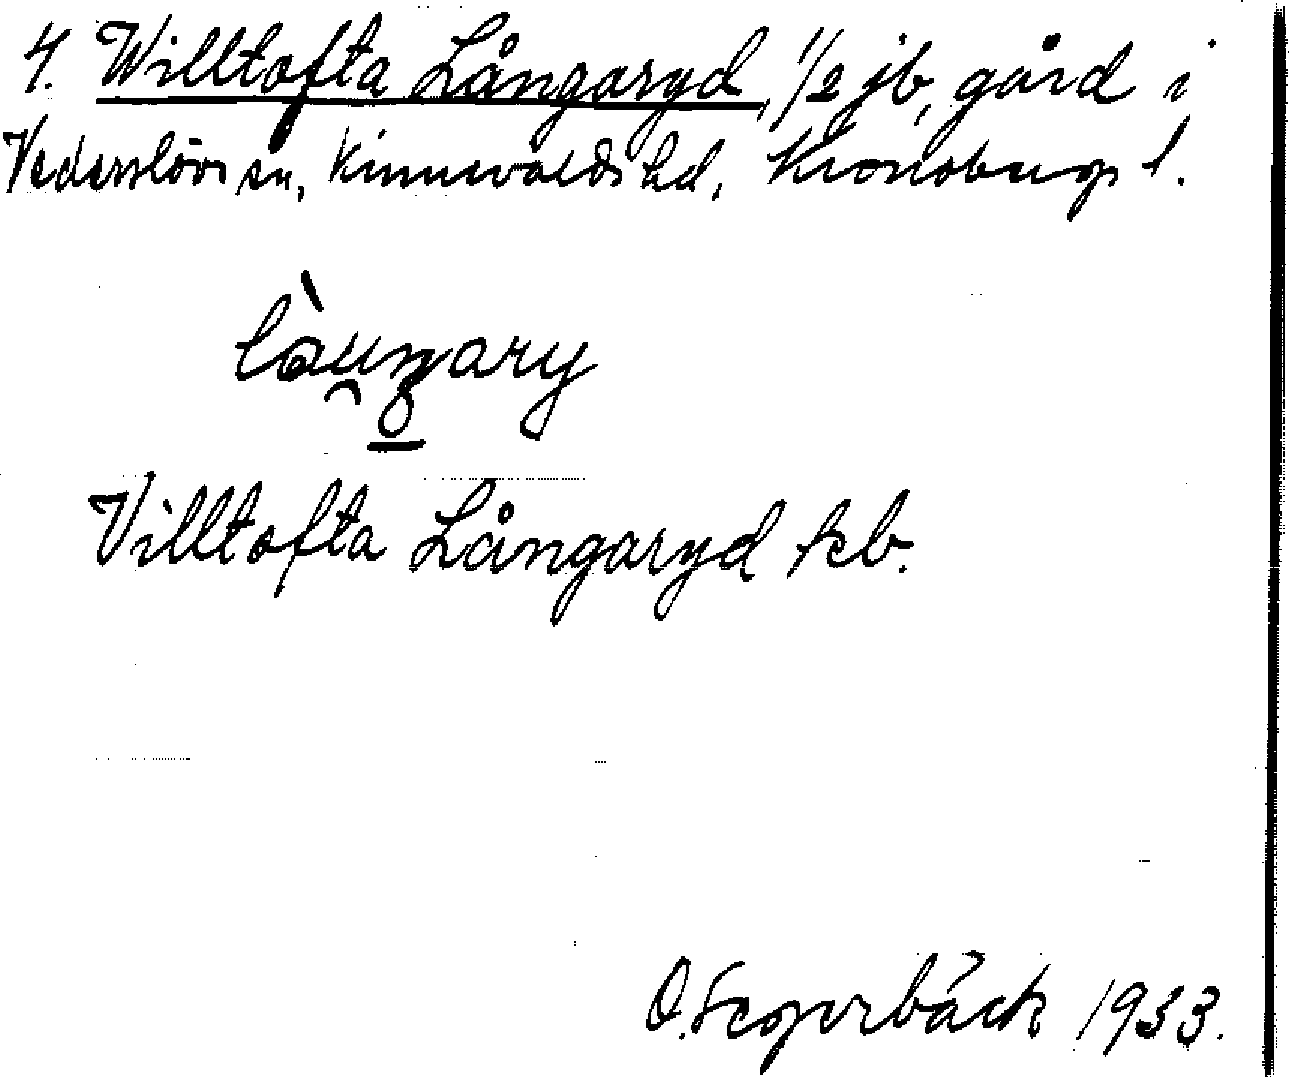 4. Willtofta Långaryd, 1/2 jb, gård i
Vederslövs sn, Kinnevalds hd, Kronobergs l.
Villtofta Långaryd kb.
O. Segerbäck 1933.